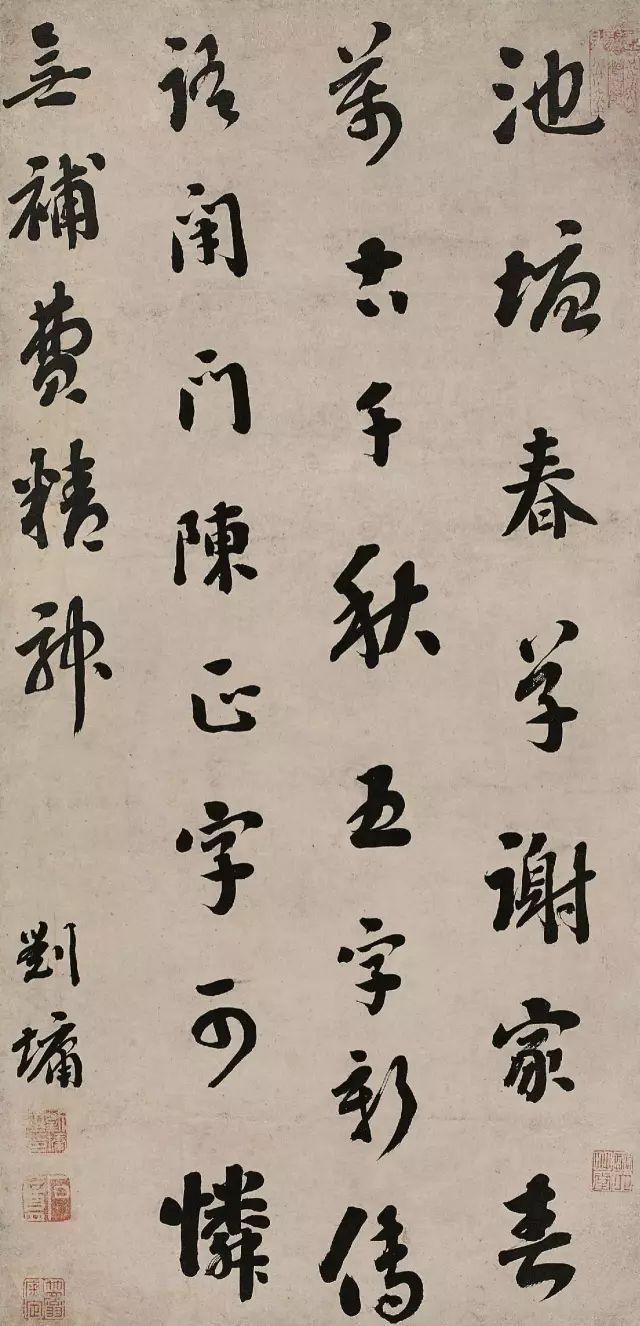 池塘春草謝家春
萬古千秋五字新傳
語閉門陳正字可憐
無補費精神
劉墉